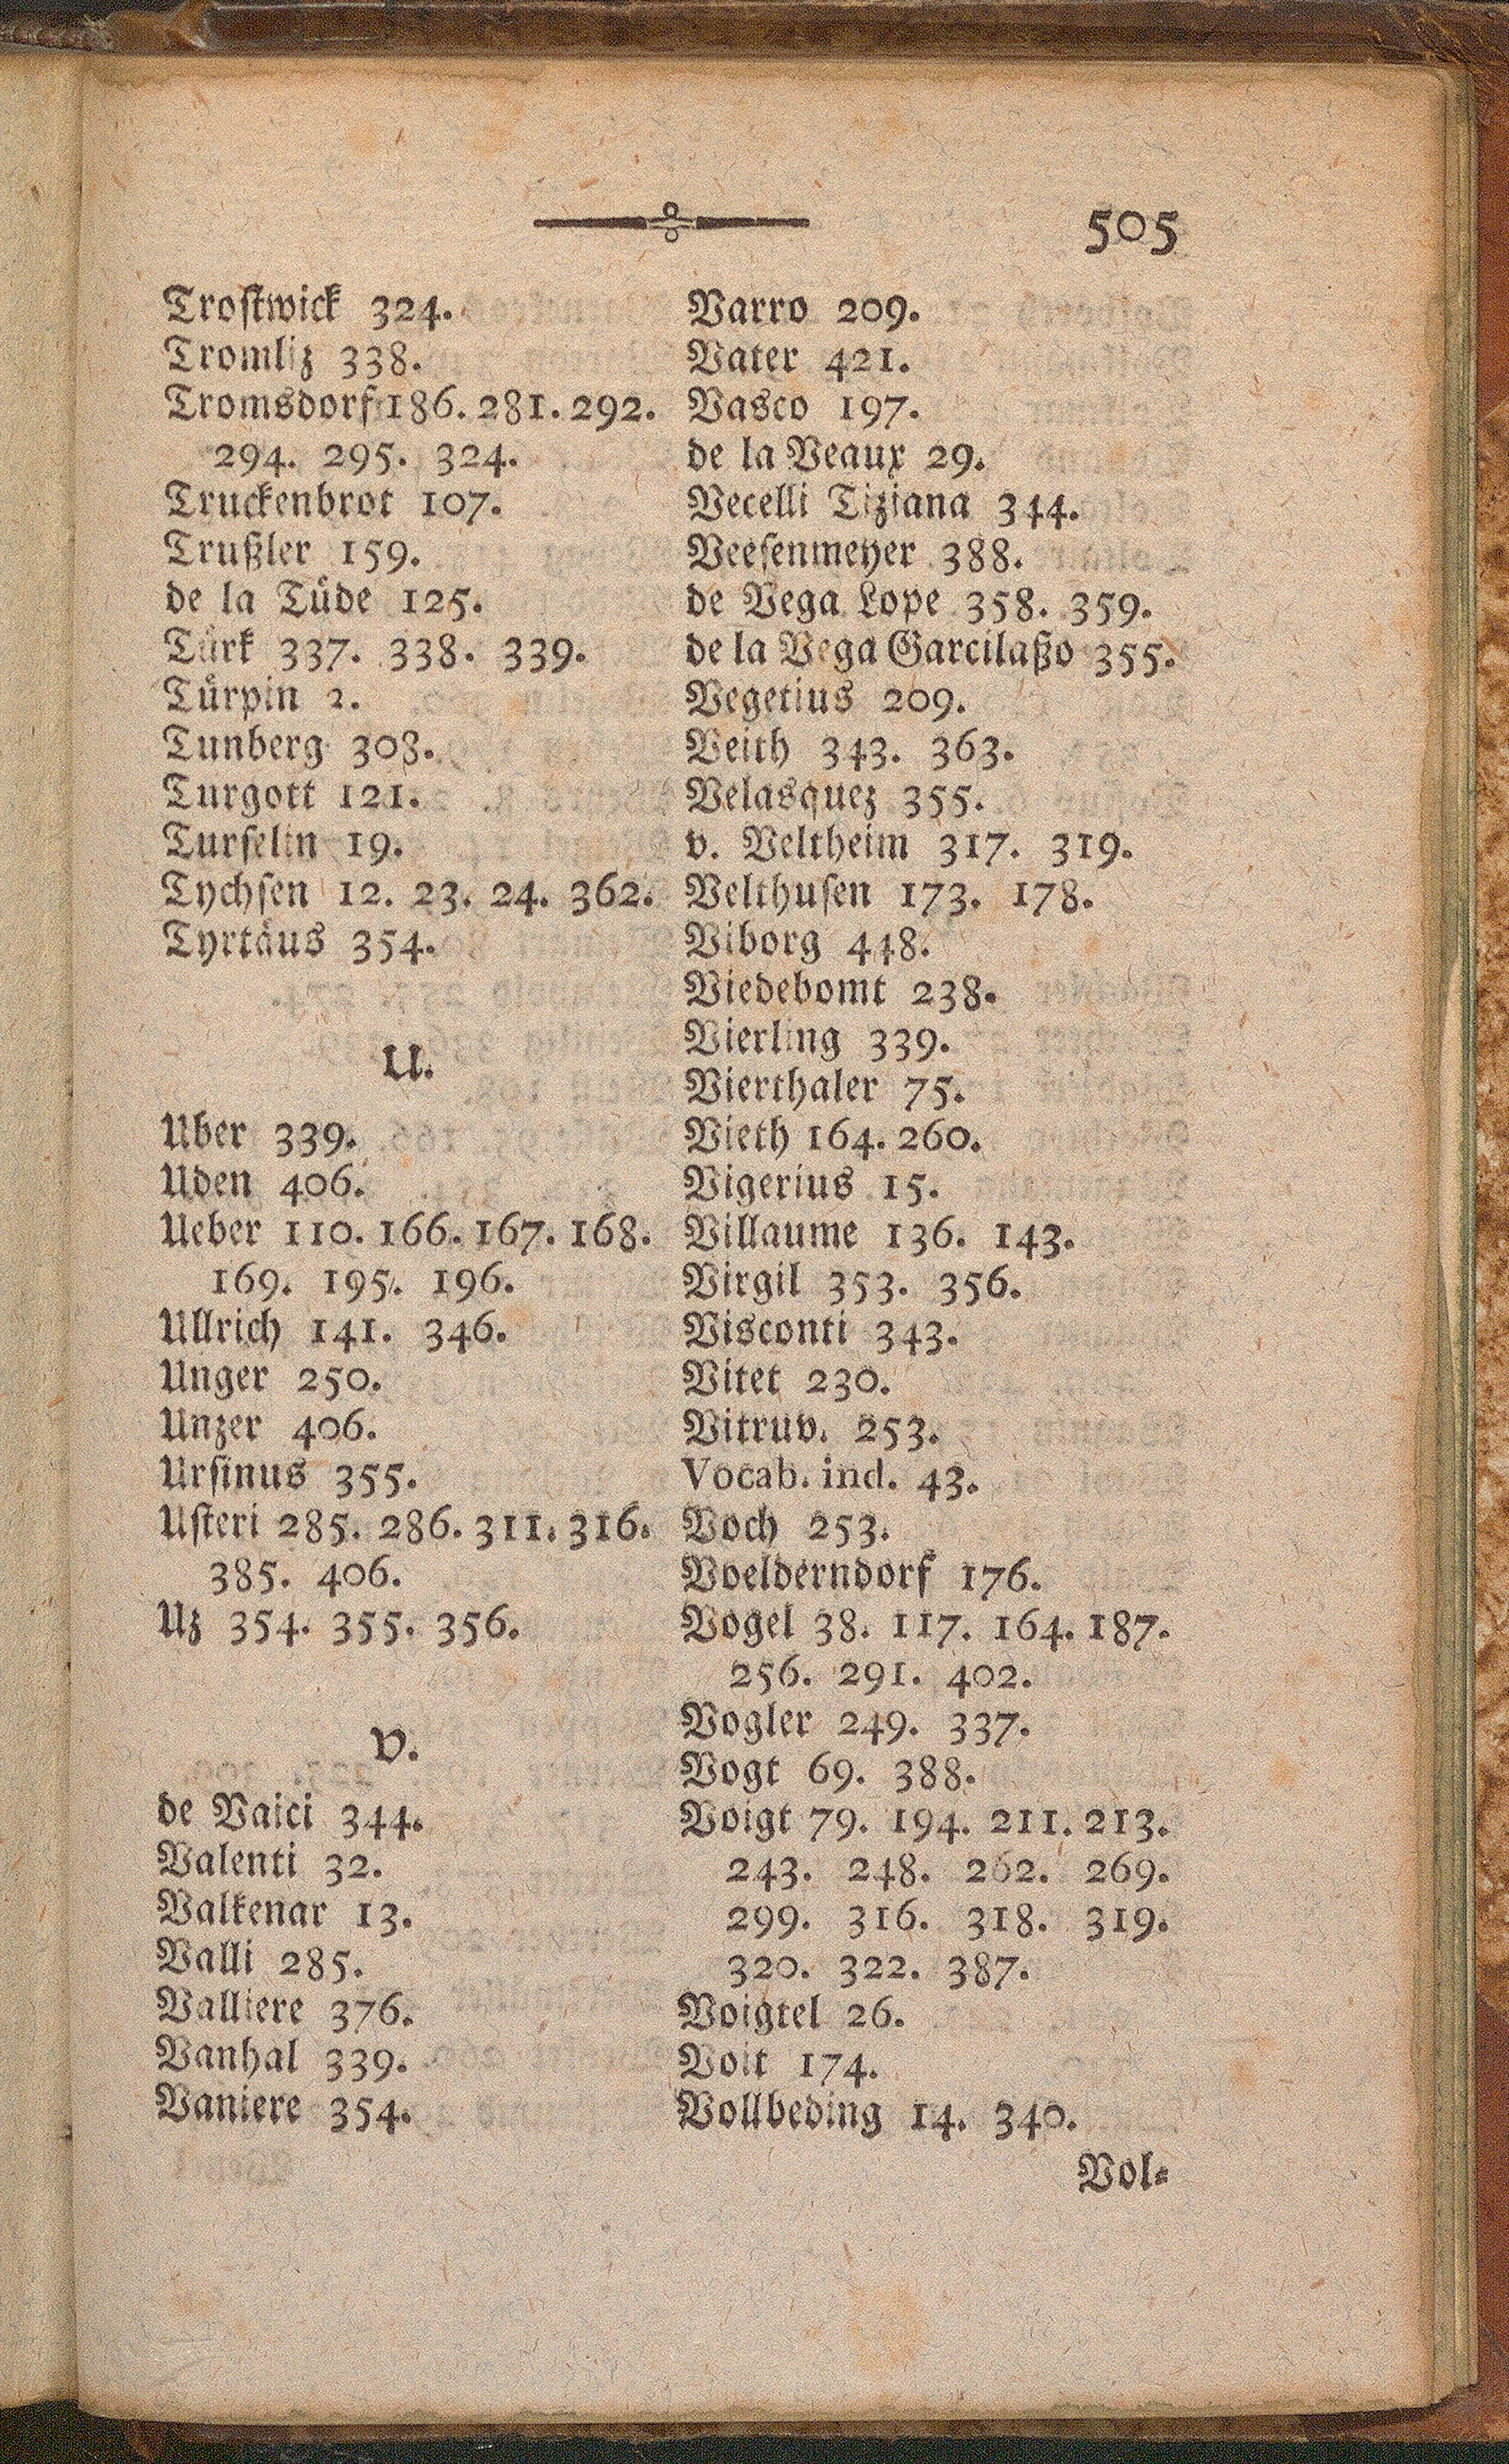 505
Trostwick 324.
Tromliz 338.
Tromsdorf 186. 281. 292.
294. 295. 324.
Truckenbrot 107.
Trußler 159.
de la Tüde 125.
Türk 337. 338. 339.
Türpin 2.
Tunberg 308.
Turgott 121.
Turselin 19.
Tychsen 12. 23. 24. 362.
Tyrtäus 354.
U.
Uber 339.
Uden 406.
Ueber 110. 166. 167. 168.
169. 195. 196.
Ullrich 141. 346.
Unger 250.
Unzer 406.
Ursinus 355.
Usteri 285. 286. 311. 316.
385. 406.
Uz 354. 355. 356.
V.
de Vaici 344.
Valenti 32.
Valkenar 13.
Valli 285.
Valliere 376.
Vanhal 339.
Vaniere 354.
Varro 209.
Vater 421.
Vasco 197.
de la Veaux 29.
Vecelli Tiziana 344.
Veesenmeyer 388.
de Vega Lope 358. 359.
de la Vega Garcilaßo 355.
Vegetius 209.
Veith 343. 363.
Velasquez 355.
v. Veltheim 317. 319.
Velthusen 173. 178.
Viborg 448.
Viedebomt 238.
Vierling 339.
Vierthaler 75.
Vieth 164. 260.
Vigerius 15.
Villaume 136. 143.
Virgil 353. 356.
Visconti 343.
Vitet 230.
Vitruv. 253.
Vocab. ind. 43.
Voch 253.
Voelderndorf 176.
Vogel 38. 117. 164. 187.
256. 291. 402.
Vogler 249. 337.
Vogt 69. 388.
Voigt 79. 194. 211. 213.
243. 248. 262. 269.
299. 316. 318. 319.
320. 322. 387.
Voigtel 26.
Voit 174.
Vollbeding 14. 340.
Vol=